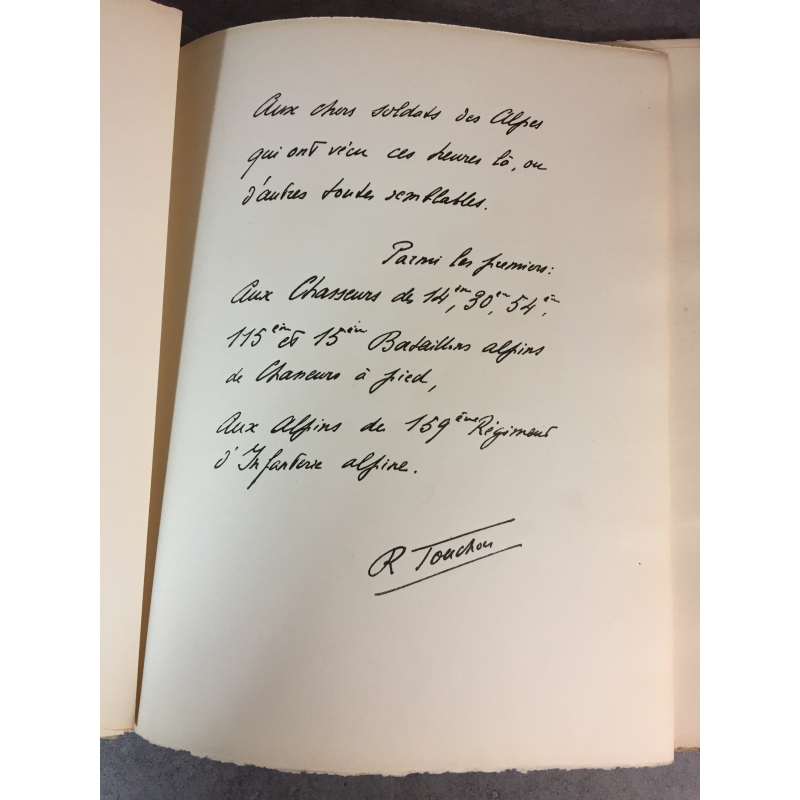 Aux chers soldats des Alpes
qui ont vécu ces heures là, ou
d'autres toutes semblables.
Parmi les premiers:
Aux Chasseurs des 14èm, 30èm, 54èm,
115èm et 15èm Bataillons alpins
de Chasseurs à pied,
Aux Alpins du 159ème Régiment
d'Infanterie alpine.
R Touchon